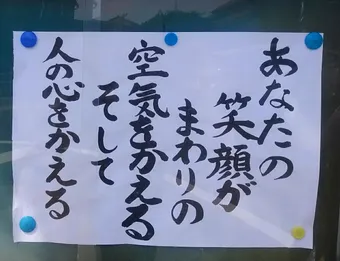 あなたの
笑顔が
まわりの
空気をかえる
そして
人の心をかえる